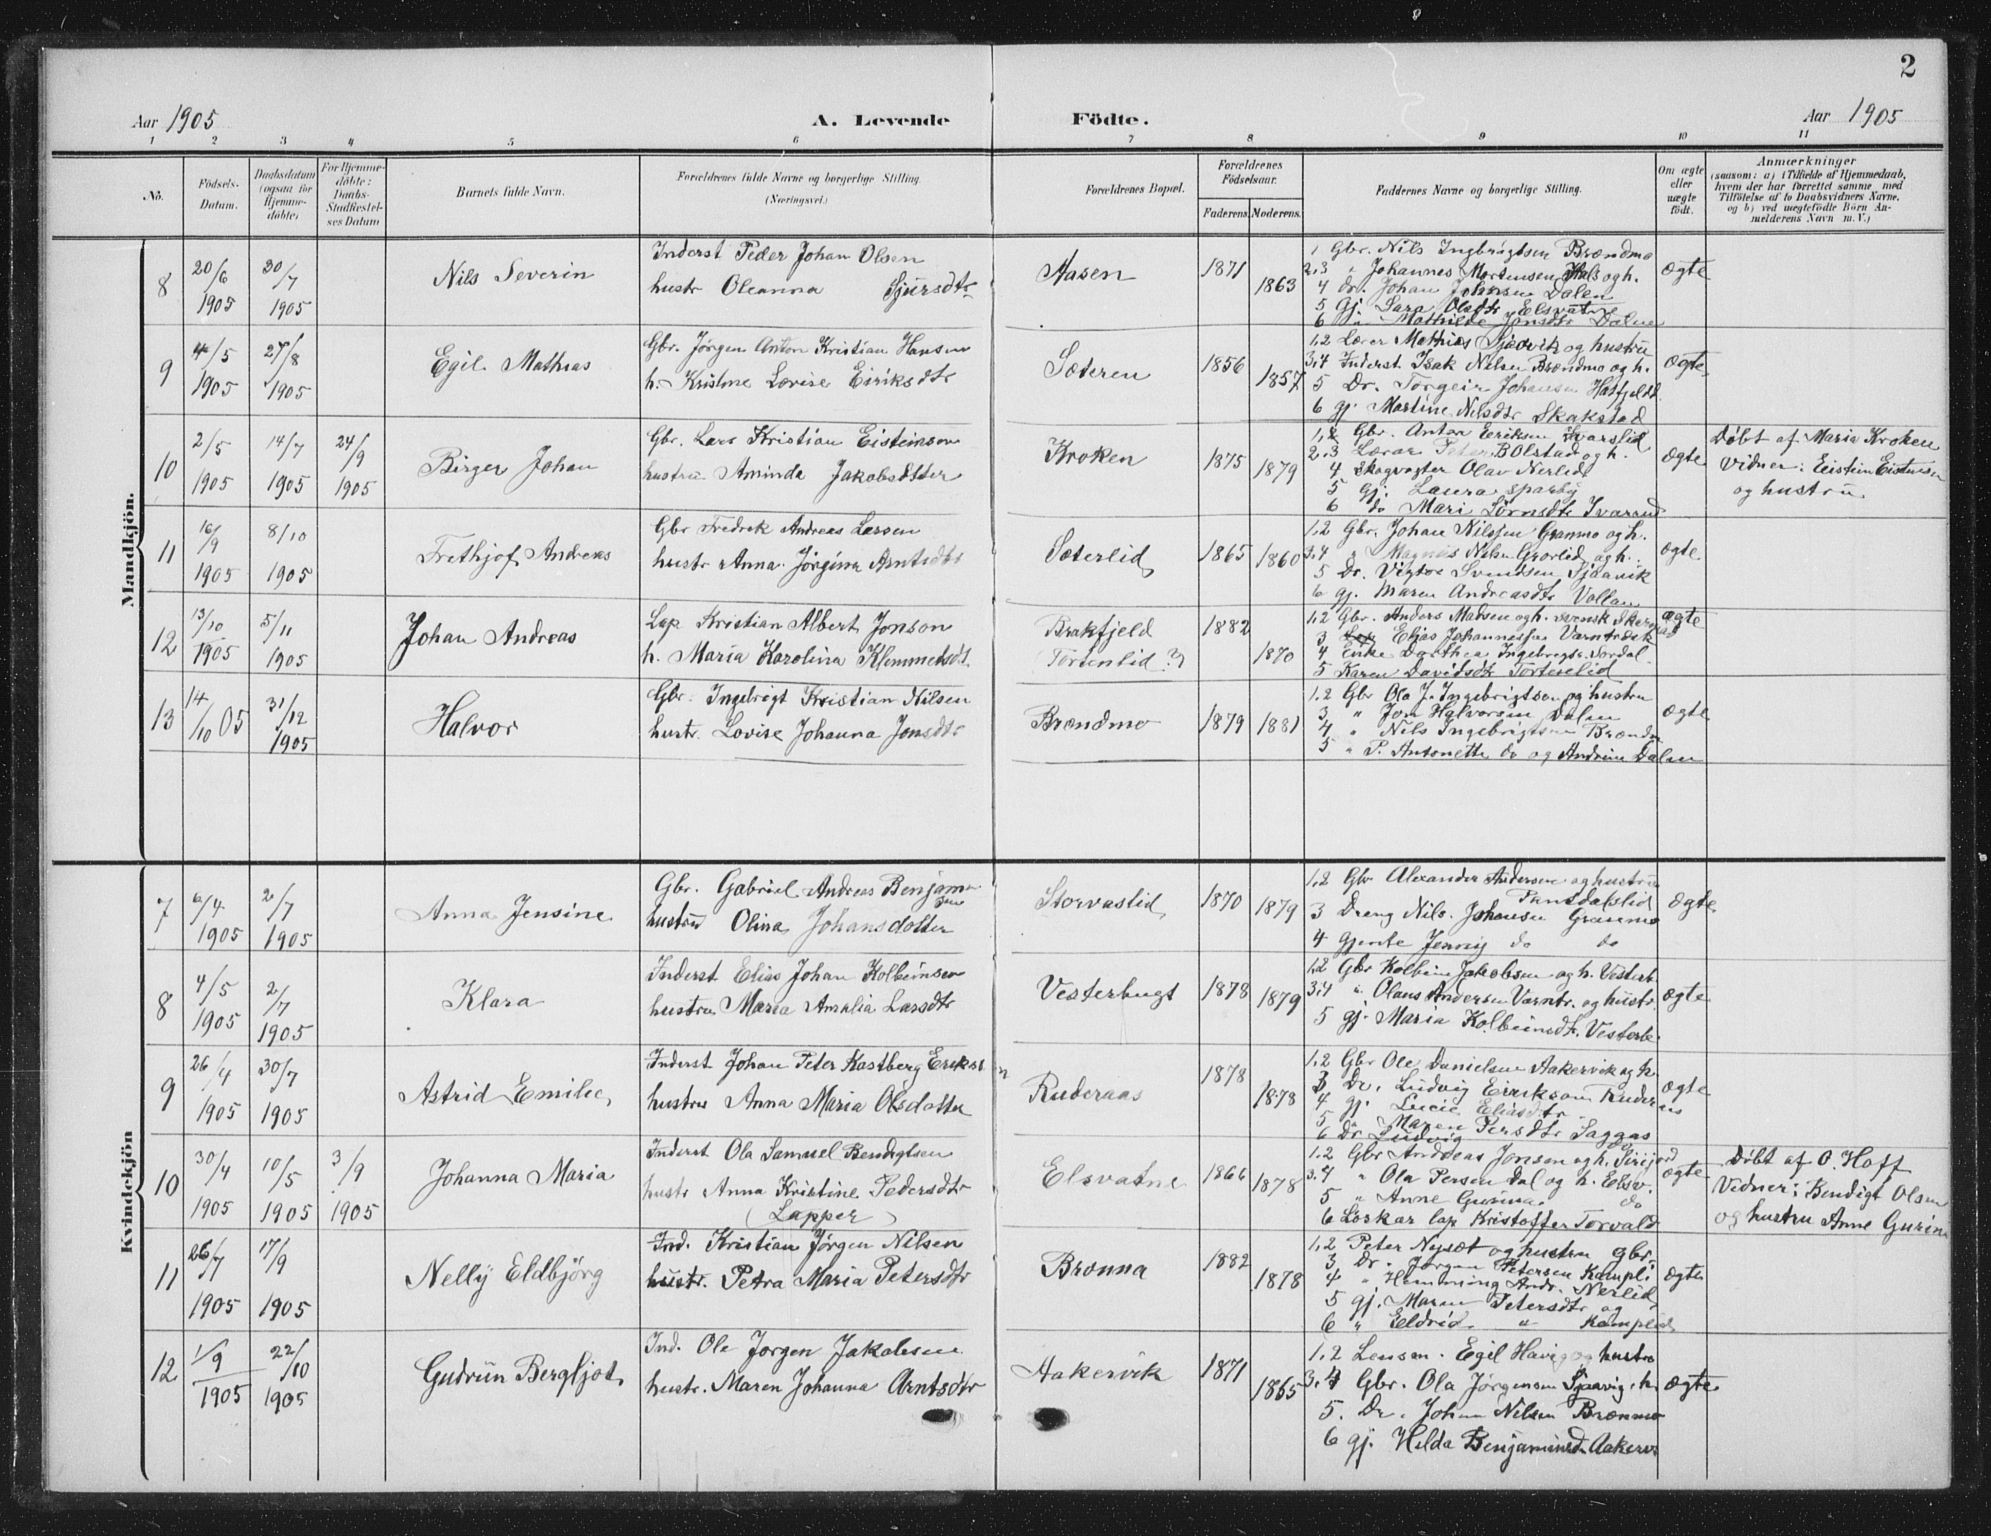 2
Aar 1905
A. Levende Födte.
Aar 1905
1 2 3 4 5 6 7 8 9 10 11
No.
Födsels-Datum.
Daabsdatum (ogsaa for Hjemme-döbte)
For Hjemme-döbte: Daabs-Stadfæstel-ses Datum
Barnets fulde Navn.
Forældrenes fulde Navne og borgerlige Stilling. (Næringsvei.)
Forældrenes Bopæl.
Forældrenes Födselsaar.
Faderens. Moderens.
Faddernes Navne og borgerlige Stilling.
Om ægte eller uægte födt.
Anmærkninger
(saasom: a) i Tilfælde af Hjemmedaab,
hvem der har forrettet samme, med
Tilföielse af to Daabsvidners Navne,
og b) ved uægtefödte Börn An-
melderens Navn m. V.)
Mandkjön.
8 20/6 1905 30/7 1905 Nils Severin
Inderst Peder Johan Olsen
hustr Oleanna Sjursdtr
Aasen 1871 1863
1 Gbr. Nils Ingbrigtsen Brændmo
2.3 " Johannes Mortensen Hals og h.
4 dr. Johan Johnsen Dalen
5 Gj. Sara Olsdtr Elsvatn
6 " Mathilde Jonsdtr Dalen
ægte
9 4/5 1905 27/8 1905 Egil Mathias
Gbr. Jörgen Anton Kristian Hansen
h. Kristine Lovise Eiriksdtr
Sæteren 1856 1857
1,2 Lærer Mathias Sjaavik og hustru
3,4 Inderst Isak Nilsen Brændmo og h.
5 Dr. Torgeir Johansen Hatfjeldd
6 gj. Martine Nilsdtr Skakstad
ægte
10 2/5 1905 14/7 1905 24/9 1905 Birger Johan
Gbr. Lars Kristian Eisteinson
hustru Aminda Jakobsdtter
Kroken 1875 1879
1,2 Gbr. Anton Eriksen Svarslid
2.3 Lærer Peter Bolstad og h.
4 Skogvogter Olav Nerlid
5 gj. Laura Sparby
6 do Mari Ivarrud
ægte
Döbt af Maria Kroken
Vidner: Eistein Eistensen
og hustru
11 16/9 1905 8/10 1905 Frethjof Andreas
Gbr Fredrik Andreas Larsen
hustr Anna Jörgina Arntsdtr
Sæterlid 1865 1860
1,2 Gbr. Johan Nilssen Granmo og h.
3,4 " Magnus Nilsen Grorlid og h.
5 Dr. Vigtor Svendsen Sjaavik
6 gj. Maren Andreasdtr Vollan
ægte
12 13/10 1905 5/11 1905 Johan Andreas
Lap Kristian Albert Jonson
h. Maria Karolina Klemmetsdt.
Brakfjeld
(Tortenlid?) 1882 1870
1,2 Gbr. Anders Madsen og h. svensk
3 Lap Elias Johannessen Varntræsk
4 Enke Dorthea Ingebrigts. Sordal
5 Karen Davidsdtr Tortenlid
ægte
13 14/10 05 31/12 1905 Halvor
Gbr. Ingebrigt Kristian Nilsen
hustr. Lovise Johanna Jonsdtr
Brændmo 1879 1881
1,2 Gbr Ola J. Ingebrigtsen og hustru
3 " Jon Halvorsen Dalen
4 " Nils Ingebrigtsen Brændm
5 " P. Antonette do og Andrine Dalen
ægte
Kvindekjön
7 6/4 1905 2/7 1905 Anna Jensine
Gbr. Gabriel Andreas Benjamin
sen
hustru Olina Johansdatter
Storvaslid 1870 1879
1,2 Gbr Alexander Andersen og hustru
Pantdalslid
3 Dreng Nils Johansen Granmo
4 Gjente Jenny do do
ægte
8 4/5 1905 2/7 1905 Klara
Inderst Elias Johan Kolbeinsen
hustru Maria Amalia Larsdtr
Vesterbugt 1878 1879
1,2 Gbr Kolbein Jakobsen og h. Vesterb.
3,4 " Olaus Andersen Varntr. og hustr.
5 gj. Maria Kolbeinsdt. Vesterb.
ægte
9 26/4 1905 30/7 1905 Astrid Emilie
Inderst Johan Peter Kastberg Eriksen
hustru Anna Maria Olsdatter
Ruderaas 1878 1878
1,2 Gbr Ole Danielsen Aakervik og h.
3 Dr. Ludvig Eirikson Ruderaas
4 gj. Lucie Eliasdtr
5 " Maren Persdtr Saggas
6 Dr Ludvig
ægte
10 30/4 1905 10/5 1905 3/9 1905 Johanna Maria
Inderst Ola Samuel Bendigtsen
hustr Anna Kristine Pedersdtr
(Lapper)
Elsvatne 1866 1878
1.2 Gbr Andreas Jonsen og h.
3.4 " Ola Persen Dal og h. Elsv.
5 " Anne Gurina do
6 Loskar lap Kristoffer Torvald
ægte
Döbt af O. Hoff
Vidner: Bendigt Olsen
og hustru Anne Gurine
11 26/7 1905 17/9 1905 Nelly Eldbjörg
Ind. Kristian Jörgen Nilsen
hustr. Petra Maria Petersdtr
Brønna 1882 1878
1,2 Peter Nysæt og hustru Gbr.
3 Dr. Jørgen Petersen Kampli
4 " Hemming Andr. Nerlid
5 gj. Maren Petersdtr og
6 " Eldrid " Kamplid
ægte
12 1/9 1905 22/10 1905 Gudrun Bergljot
Ind. Ole Jørgen Jakobsen
hustr. Maren Johanna Arntsdtr
Aakervik 1871 1865
1,2 Lensm. Egil Havig og hustru
3,4 Gbr. Ola Jørgensen Sjaavig. h.
5. Dr. Johan Nilsen Brænmo
6 gj. Hilda Benjaminsd. Aakerv
ægte